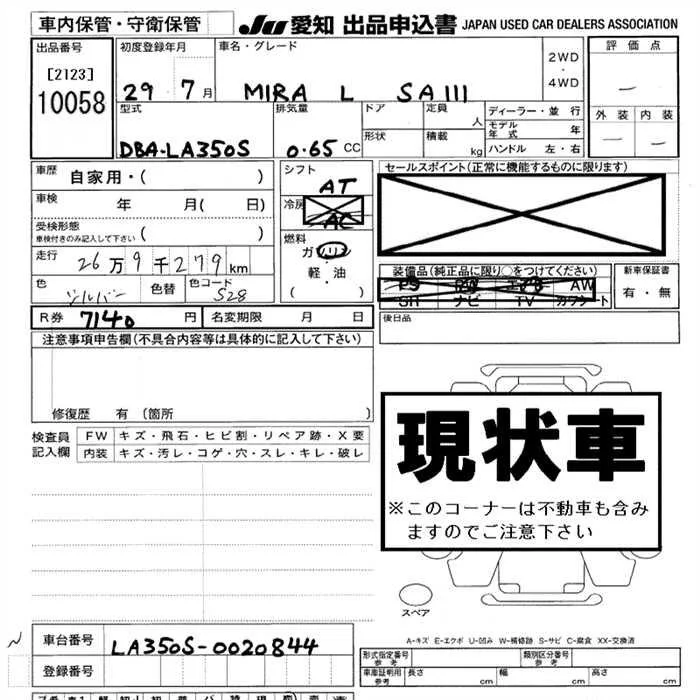 車内保管・守衛保管
JU 愛知 出品申込書 JAPAN USED CAR DEALERS ASSOCIATION
出品番号 初度登録年月 車名・グレード 2WD・4WD 評価点
[2123]
10058
29 7月 MIRA L SAIII
―
型式 排気量 ドア 定員 人 ディーラー・並行 外装 内装
DBA-LA350S 0.65 CC 形状 積載 kg モデル年式 年 ― ―
ハンドル 左・右
車歴 自家用・( ) シフト AT セールスポイント(正常に機能するものに限ります)
車検 年 月( 日) 冷房 AC
受検形態 車検付きのみ記入して下さい ( ) 燃料 ガソリン
走行 26万9千279km 軽・油
色 シルバー 色替 色コード S28 ( )
装備品(純正品に限り○をつけてください) 新車保証書
PS PW エアB AW 有・無
SR ナビ TV カワシート
R券 7140 円 名変期限 月 日 後日品
注意事項申告欄(不具合内容等は具体的に記入して下さい)
修復歴 有(箇所 )
現状車
※このコーナーは不動車も含み
ますのでご注意下さい
検査員 FW キズ・飛石・ヒビ割・リペア跡・X要
記入欄 内装 キズ・汚レ・コゲ・穴・スレ・キレ・破レ
スペア
A-キズ E-エクボ U-凹み W-補修跡 S-サビ C-腐食 XX-交換済
車台番号 LA350S-0020844
形式指定番号 参考 類別区分番号 参考
登録番号
車庫証明用 参考 長さ 幅 高さ